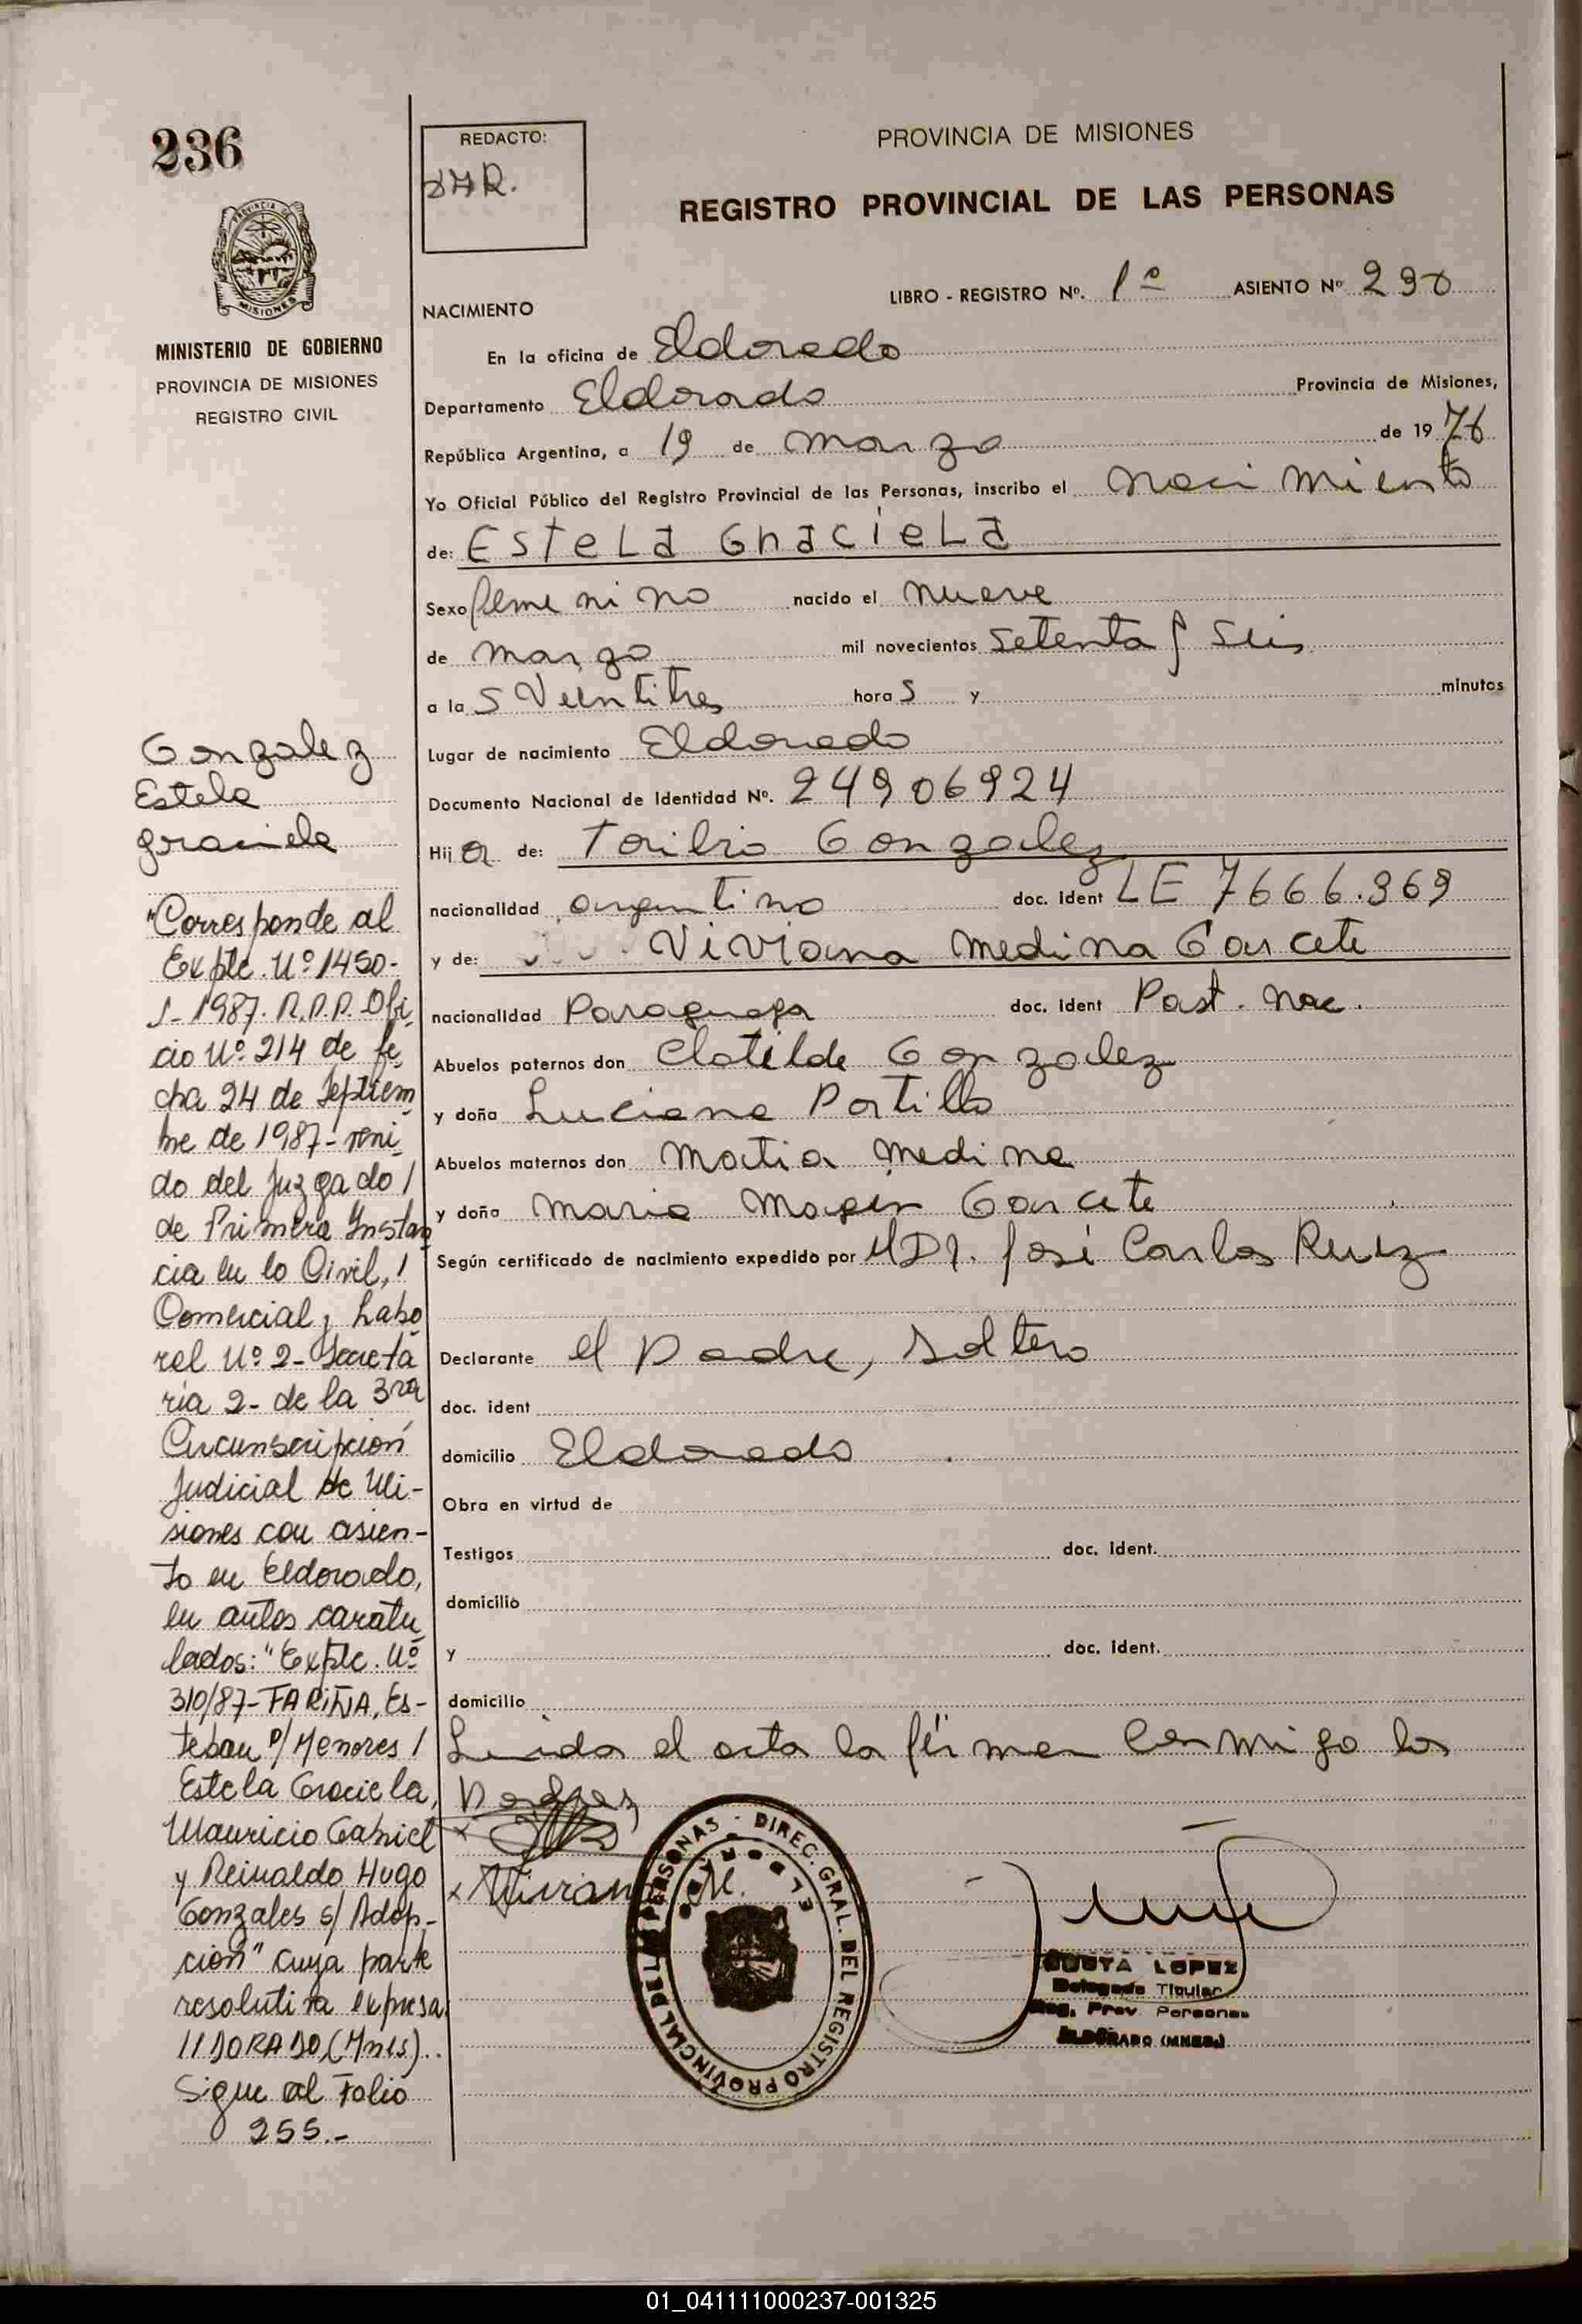 236
REDACTO:
PROVINCIA DE MISIONES
REGISTRO PROVINCIAL DE LAS PERSONAS
PROVINCIA DE
MISIONES
MINISTERIO DE GOBIERNO
PROVINCIA DE MISIONES
REGISTRO CIVIL
LIBRO - REGISTRO Nº. 1º ASIENTO Nº 230
NACIMIENTO
En la oficina de Eldorado
Departamento Eldorado Provincia de Misiones,
República Argentina, a 19 de marzo de 1976
Yo Oficial Público del Registro Provincial de las Personas, inscribo el nacimiento
de: Estela Graciela
Sexo femenino nacido el nueve
de marzo mil novecientos setenta y seis
a las veintitres horas y minutos
Lugar de nacimiento Eldorado
Documento Nacional de Identidad Nº. 24906924
Hija de: Toribio Gonzalez
nacionalidad argentino doc. ident LE 7666.969
y de: Viviana Medina Garcete
nacionalidad Paraguaya doc. ident Part. Nac.
Abuelos paternos don Clotilde Gonzalez
y doña Luciana Portillo
Abuelos maternos don Matia Medina
y doña Maria Garcete
Según certificado de nacimiento expedido por José Carlos Ruiz
Declarante el Padre, soltero
doc. ident
domicilio Eldorado
Obra en virtud de
Testigos doc. ident.
domicilio
y doc. ident.
domicilio
Leida el acta la firman conmigo los
Padres
x
x Viviana M.
DIREC. GRAL. DEL REGISTRO PROVINCIAL DE PERSONAS
LOPEZ
Delegado Titular
Reg. Prov. Personas
ELDORADO (MNES.)
Gonzalez
Estela
graciela
"Corresponde al
Expte. Nº 1450-
J-1987. R.P.P. Ofi
cio Nº 214 de fe
cha 24 de Septiem
bre de 1987- veni
do del Juzgado /
de Primera Instan
cia en lo Civil, /
Comercial y Labo
ral Nº 2- Secreta
ria 2- de la 3ra
Circunscripción
Judicial de Mi-
siones con asien-
to en Eldorado,
en autos caratu
lados: "Expte. Nº
310/87-FARIÑA, Es-
teban p/Menores /
Estela Graciela,
Mauricio Gabriel
y Reinaldo Hugo
Gonzales s/ Adop-
ción" cuya parte
resolutiva expresa
//DORADO, (Mnes)..
Sigue al Folio
255.-
01_041111000237-001325